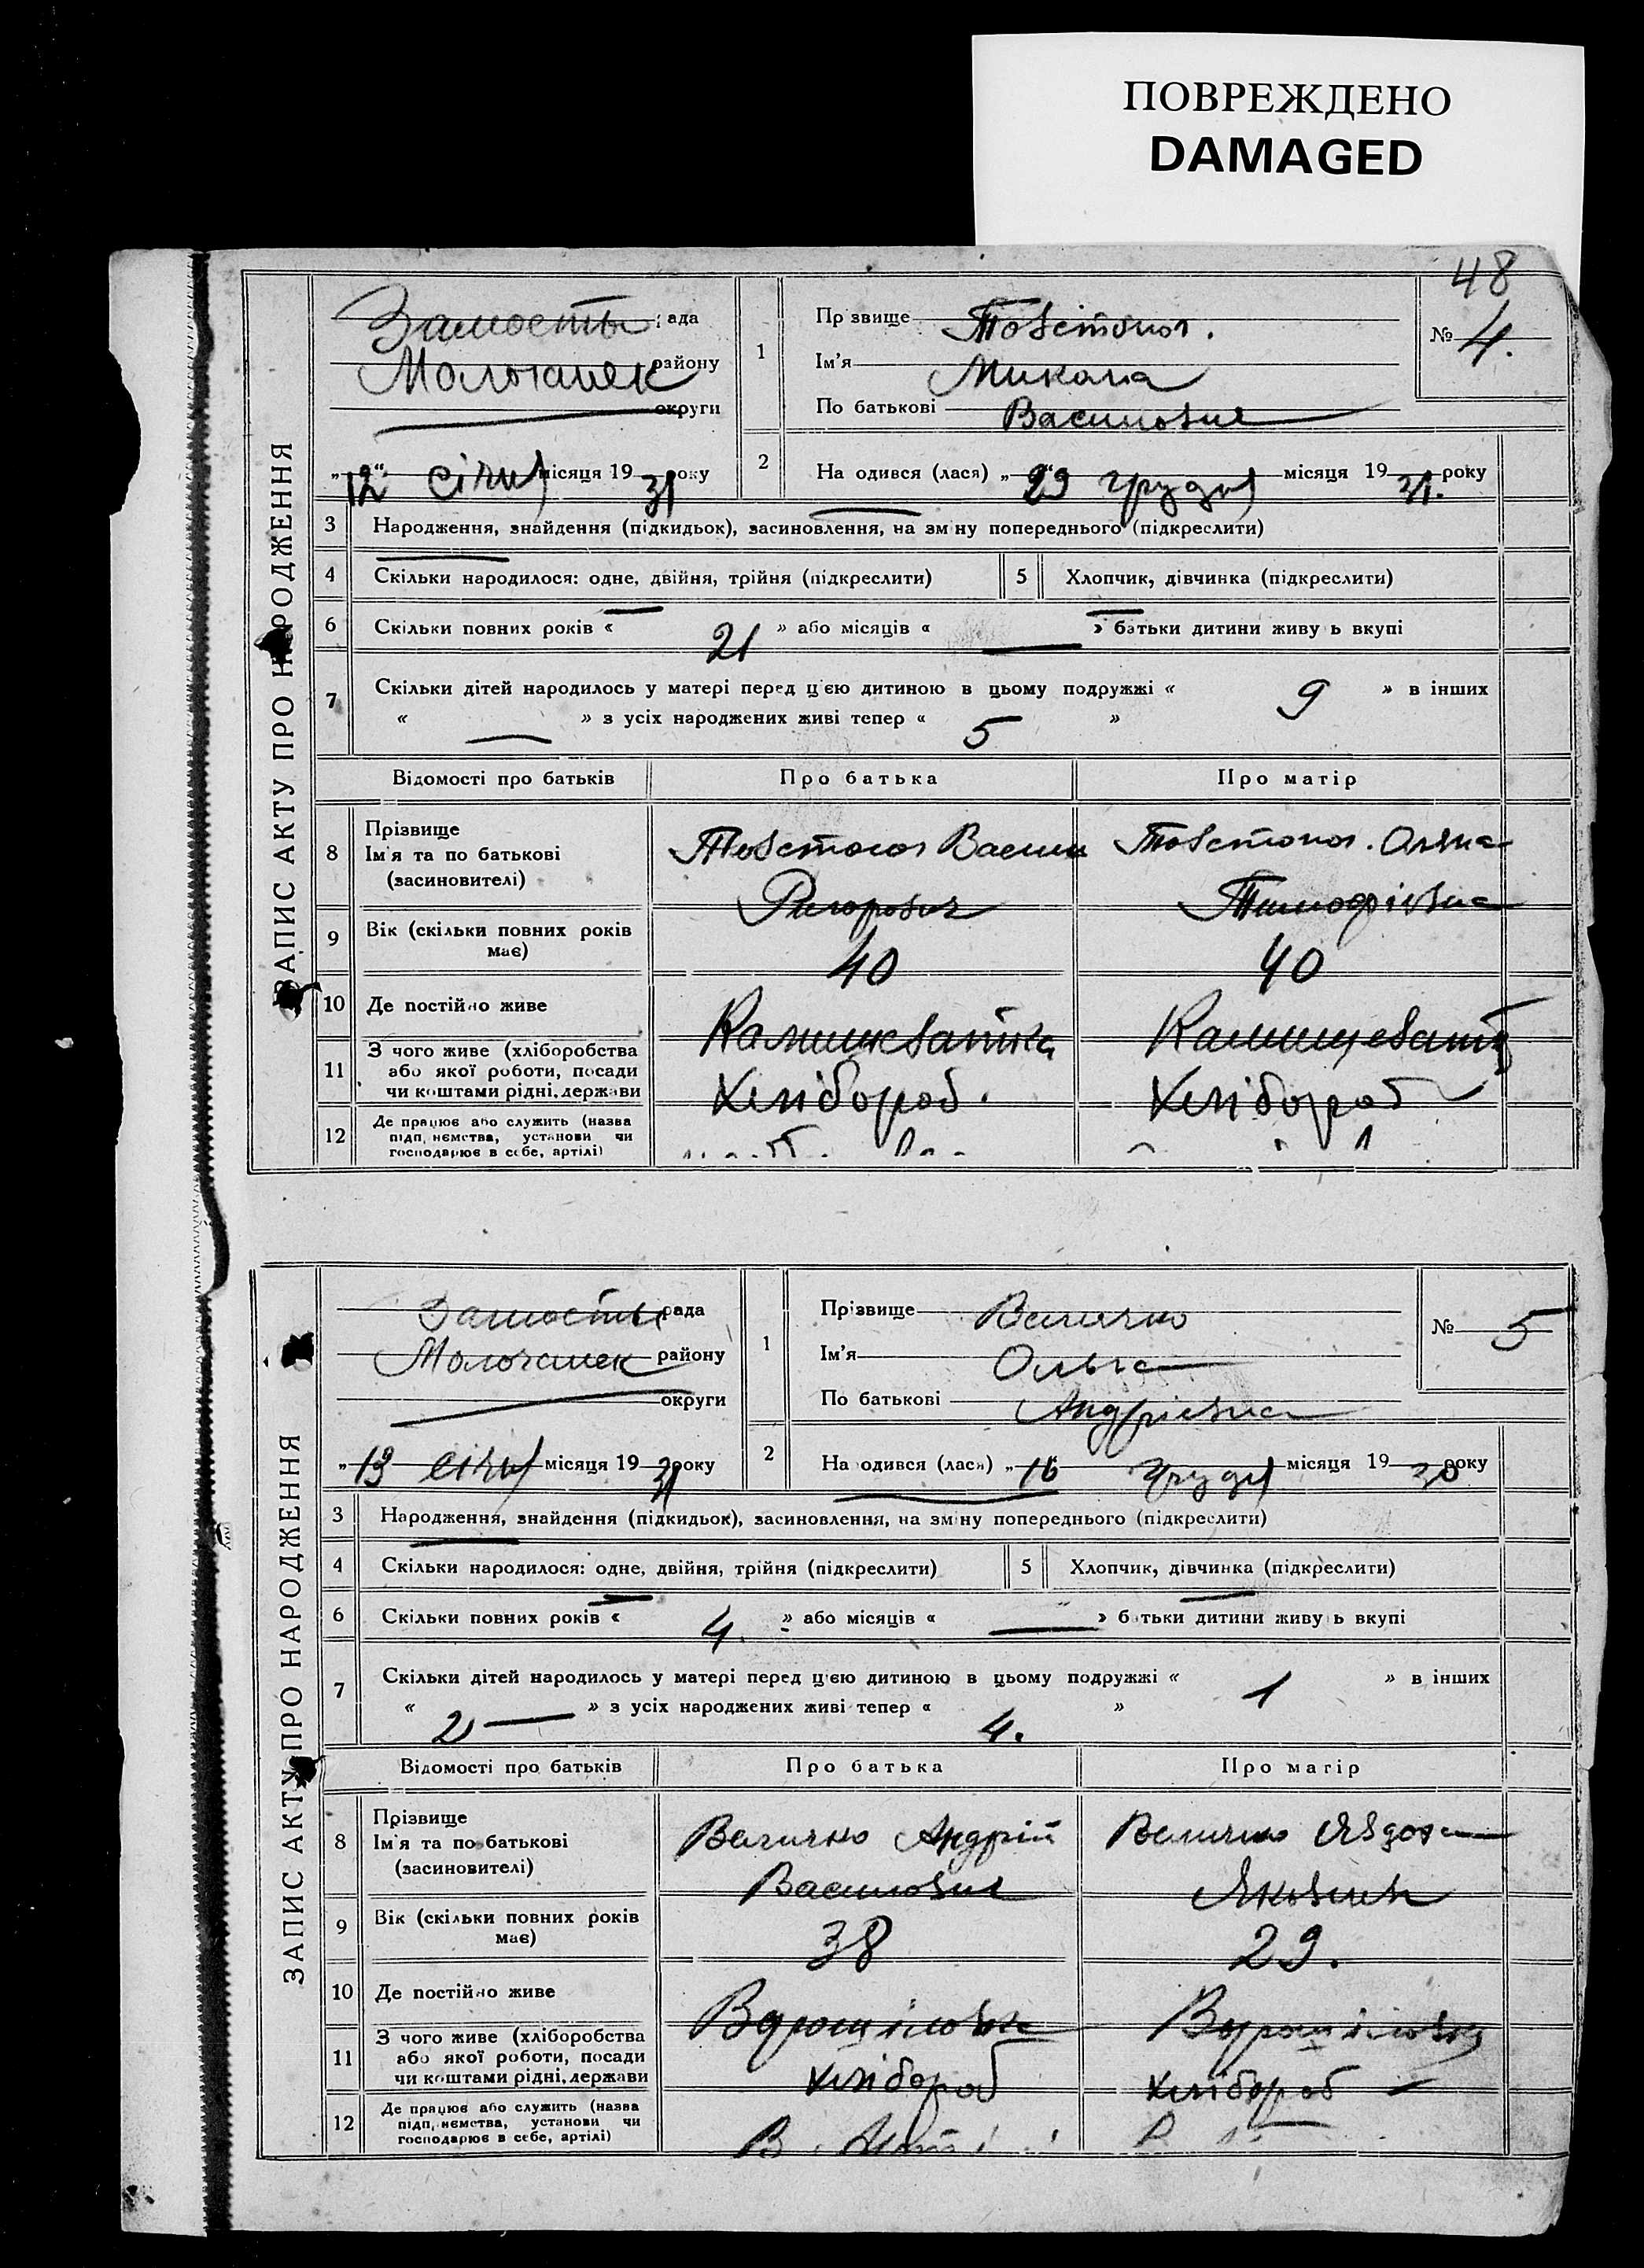 ПОВРЕЖДЕНО
DAMAGED
48
ЗАПИС АКТУ ПРО НАРОДЖЕННЯ
Замость рада
Молочанск району
округи
„12“ січня місяця 19 31 року
1 Прізвище Товстоног.
Ім'я Микола
По батькові Василович
№ 4.
2 На одився (лася) „29“ грудня місяця 19 31. року
3 Народження, знайдення (підкидьок), засиновлення, на зміну попереднього (підкреслити)
4 Скільки народилося: одне, двійня, трійня (підкреслити) 5 Хлопчик, дівчинка (підкреслити)
6 Скільки повних років « 21 » або місяців « — » батьки дитини живу ь вкупі
7 Скільки дітей народилось у матері перед цією дитиною в цьому подружжі « 9 » в інших
« — » з усіх народжених живі тепер « 5 »
Відомості про батьків Про батька Про матір
8 Прізвище
Ім'я та по батькові
(засиновителі)
Товстоног Васил Товстоног. Оляна
Ригорович Тимофіівна
9 Вік (скільки повних років
має)
40 40
10 Де постійно живе
11 З чого живе (хліборобства
або якої роботи, посади
чи коштами рідні, держави
Хлібороб. Хлібороб
12 Де працює або служить (назва
підп, немства, установи чи
господарює в себе, артілі)
ЗАПИС АКТУ ПРО НАРОДЖЕННЯ
Замость рада
Молочанск району
округи
„13 січня місяця 19 31 року
1 Прізвище Величко
Ім'я Ольга
По батькові Андріевна
№ 5
2 На одився (лася) „16 грудня місяця 19 30 року
3 Народження, знайдення (підкидьок), засиновлення, на зміну попереднього (підкреслити)
4 Скільки народилося: одне, двійня, трійня (підкреслити) 5 Хлопчик, дівчинка (підкреслити)
6 Скільки повних років « 4. » або місяців « — » б тьки дитини живу ь вкупі
7 Скільки дітей народилось у матері перед цією дитиною в цьому подружжі « 1 » в інших
« 2 — » з усіх народжених живі тепер « 4. »
Відомості про батьків Про батька Про матір
8 Прізвище
Ім'я та по батькові
(засиновителі)
Величко Андрій Величко Явдоха
Василович Яковлен
9 Вік (скільки повних років
має)
38 29.
10 Де постійно живе
Ворошіловка Ворошіловка
11 З чого живе (хліборобства
або якої роботи, посади
чи коштами рідні, держави
хлібороб хлібороб
12 Де працює або служить (назва
підп, немства, установи чи
господарює в себе, артілі)